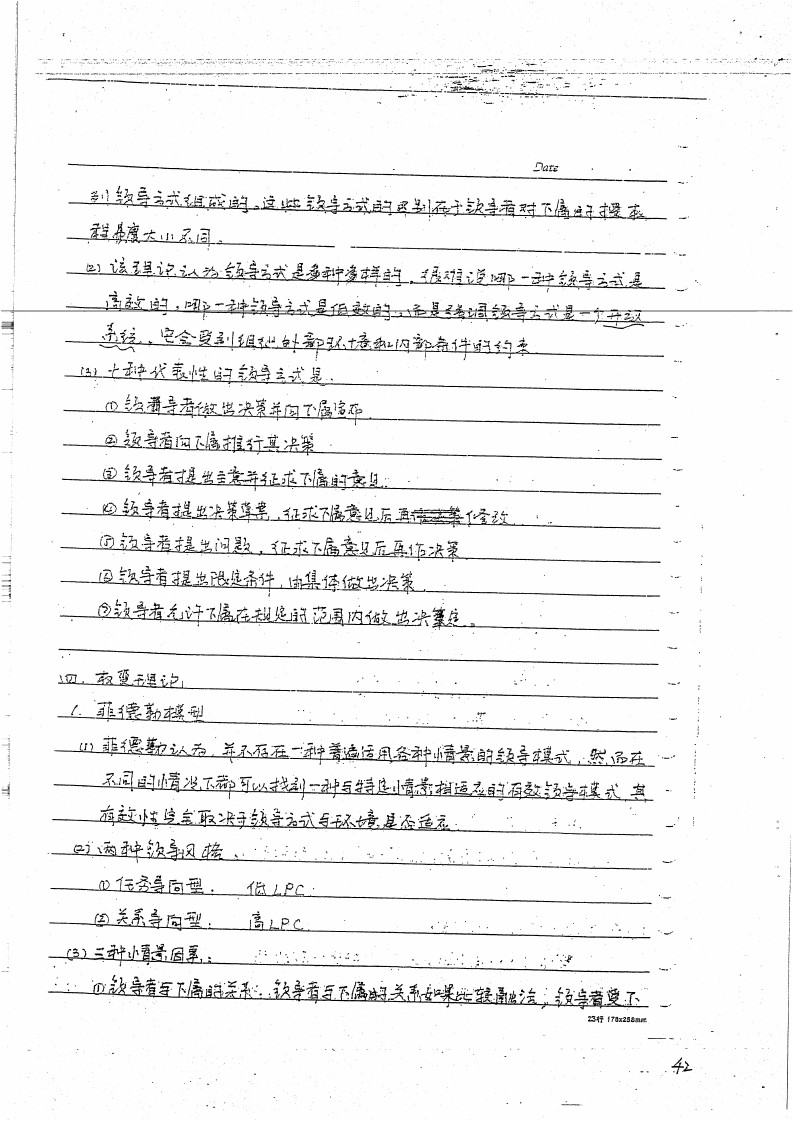 Date
别领导方式组成的。这些领导方式的区别在于领导者对下属的授权
程度大小不同。
(2) 该理论认为领导方式是多种多样的，很难说哪一种领导方式是
高效的，哪一种领导方式是低效的，而是强调领导方式是一个开放
系统，它会受到组织外部环境和内部条件的约束
(3) 七种代表性的领导方式是.
① 领导者做出决策并向下属宣布
② 领导者向下属推行其决策
③ 领导者提出主意并征求下属的意见.
④ 领导者提出决策草案，征求下属意见后再修改
⑤ 领导者提出问题，征求下属意见后再作决策
⑥ 领导者提出限定条件，由集体做出决策.
⑦ 领导者允许下属在规定的范围内做出决定。
四. 权变理论
1. 菲德勒模型
(1) 菲德勒认为，并不存在一种普遍适用各种情景的领导模式，然而在
不同的情况下都可以找到一种与特定情景相适应的有效领导模式，其
有效性完全取决于领导方式与环境是否适应
(2) 两种领导风格、
① 任务导向型： 低LPC
② 关系导向型： 高LPC
(3) 三种情景因素：
① 领导者与下属的关系：领导者与下属的关系如果比较融洽，领导者受下
23行 178x258mm
42